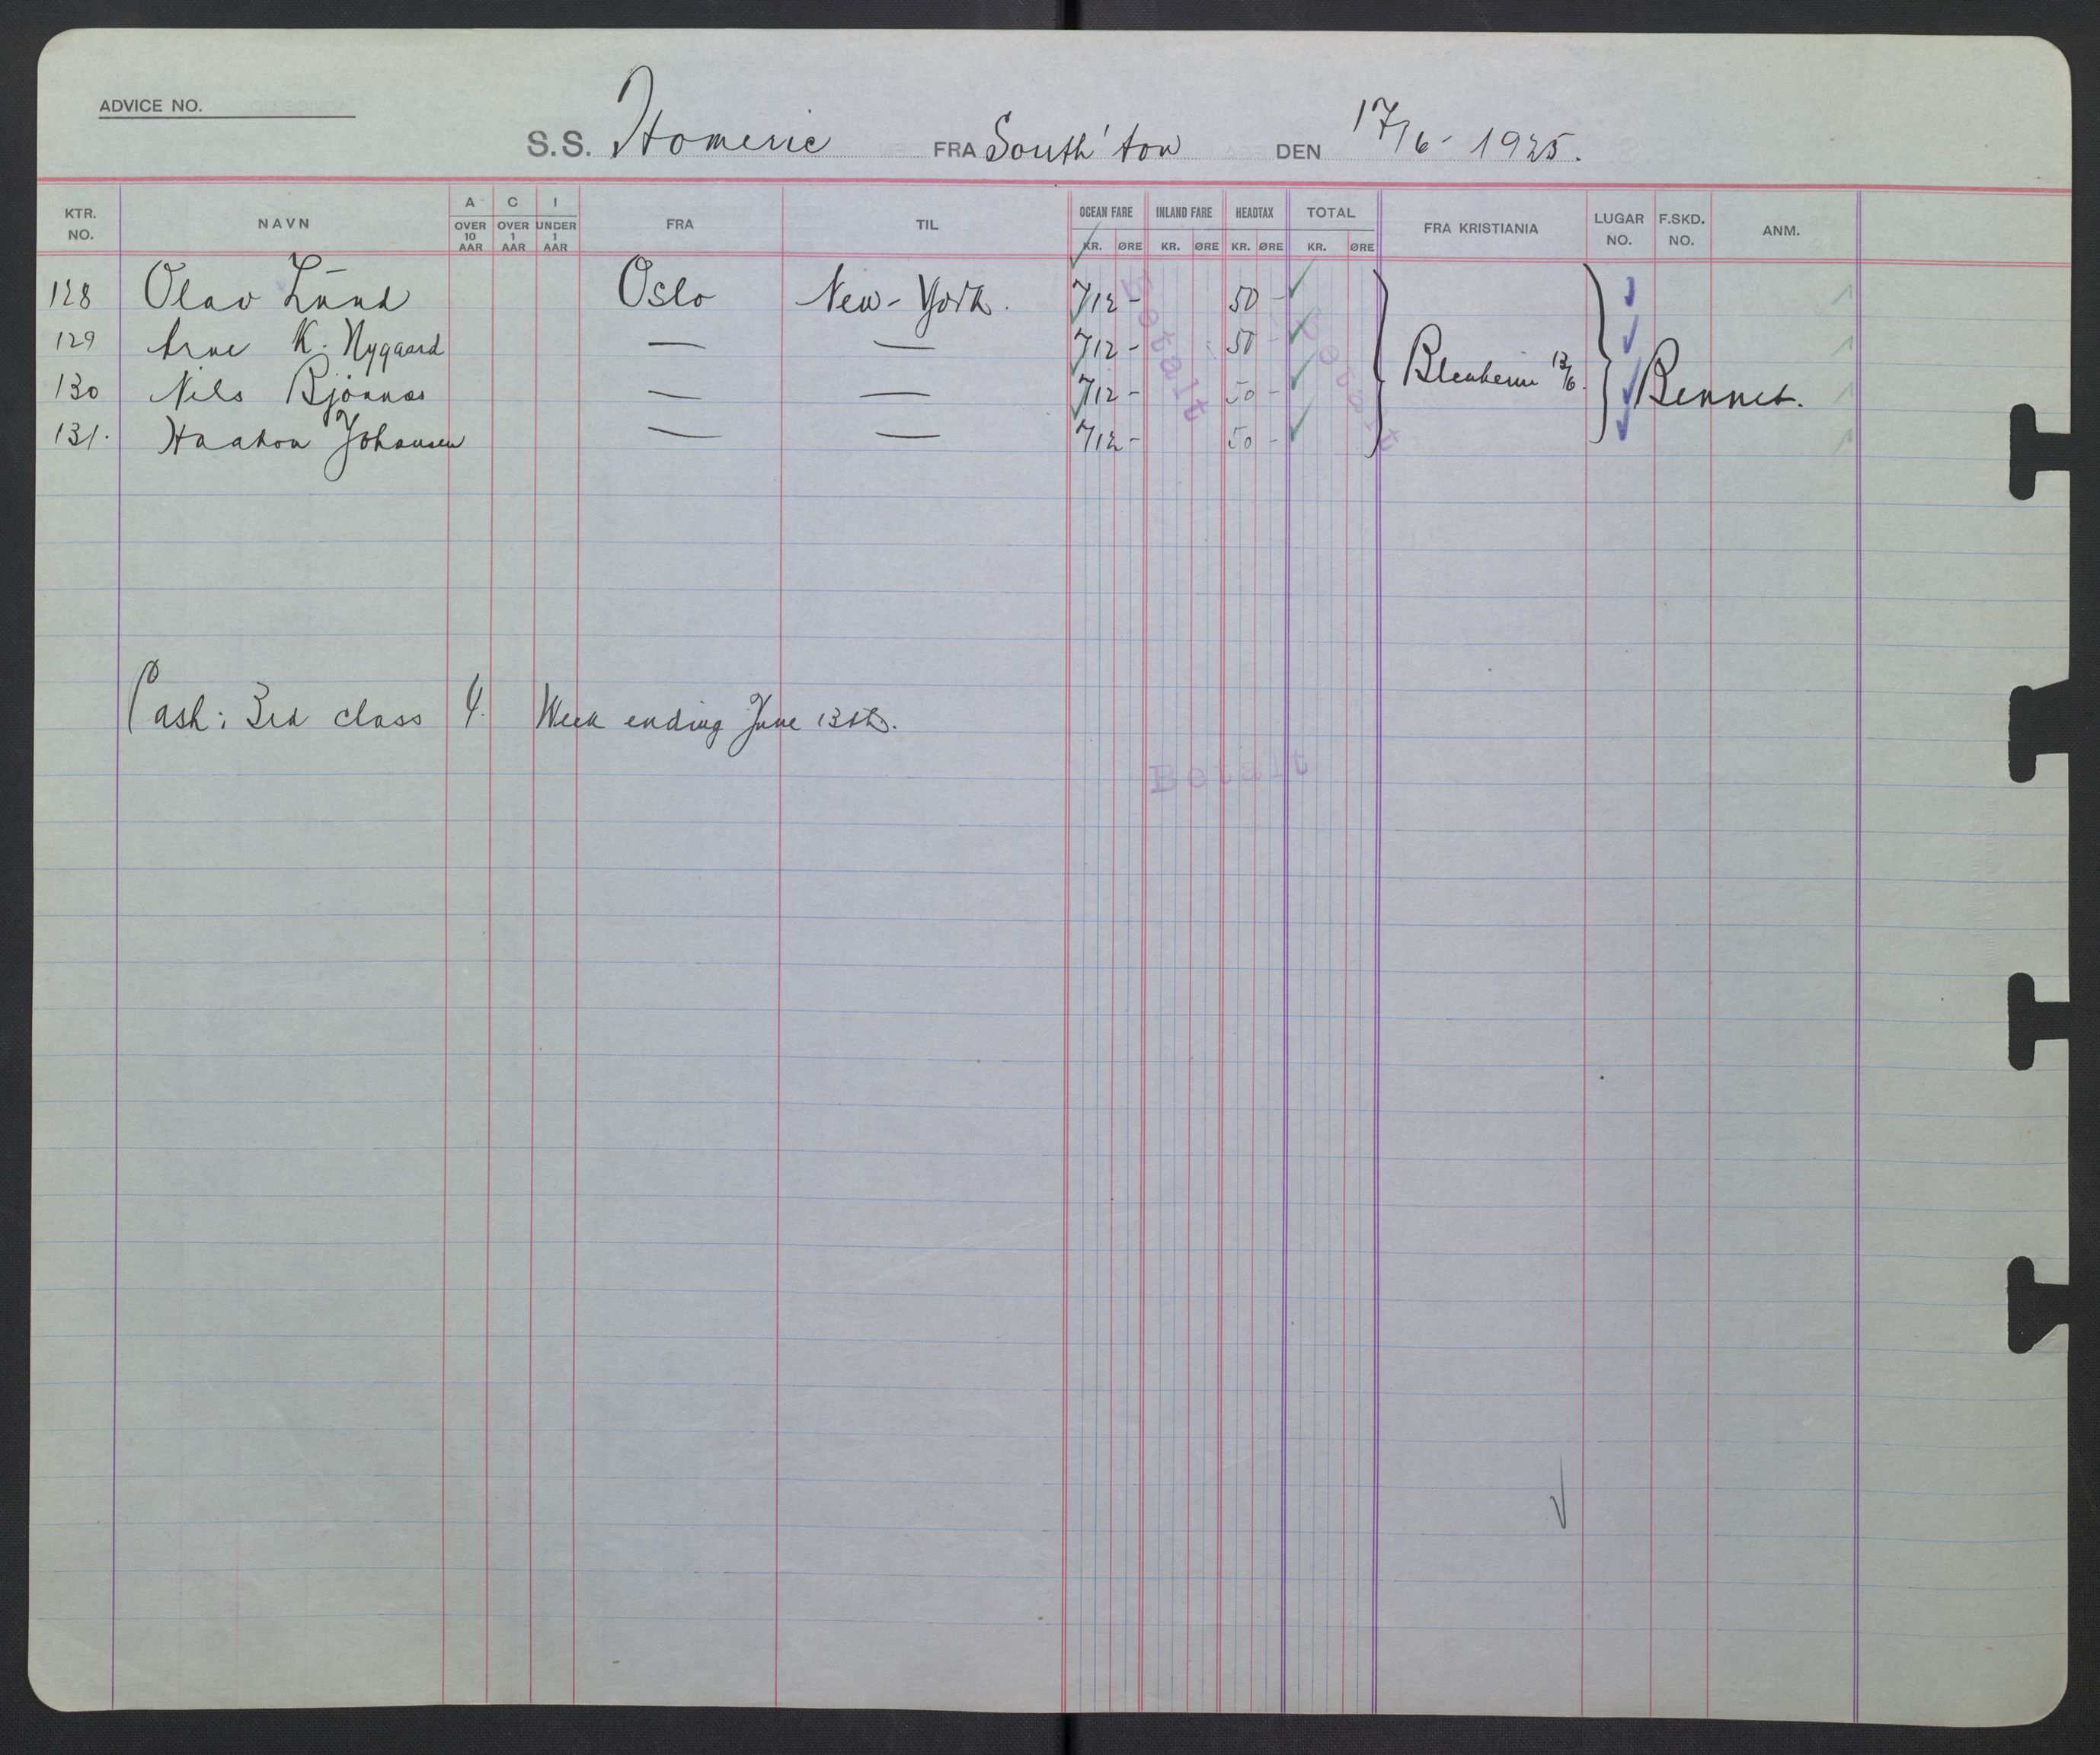 ADVICE NO.
S.S. Homeric FRA South'ton DEN 17/6 - 1925.
KTR. NO. NAVN A OVER 10 AAR C OVER 1 AAR I UNDER 1 AAR FRA TIL OCEAN FARE KR. ØRE INLAND FARE KR. ØRE HEADTAX KR. ØRE TOTAL KR. ØRE FRA KRISTIANIA LUGAR NO. F.SKD. NO. ANM.
128 Olav Lund Oslo New-York. 712 - 50 -
129 Arne K. Nygaard — — 712 - 50 -
130 Nils Bjønnas — — 712 - 50 -
131. Haakon Johansen — — 712 - 50 -
Blenheim 13/6. Bennet.
Betalt
Betalt
Cash: 3rd class 4. Week ending June 13th.
Betalt